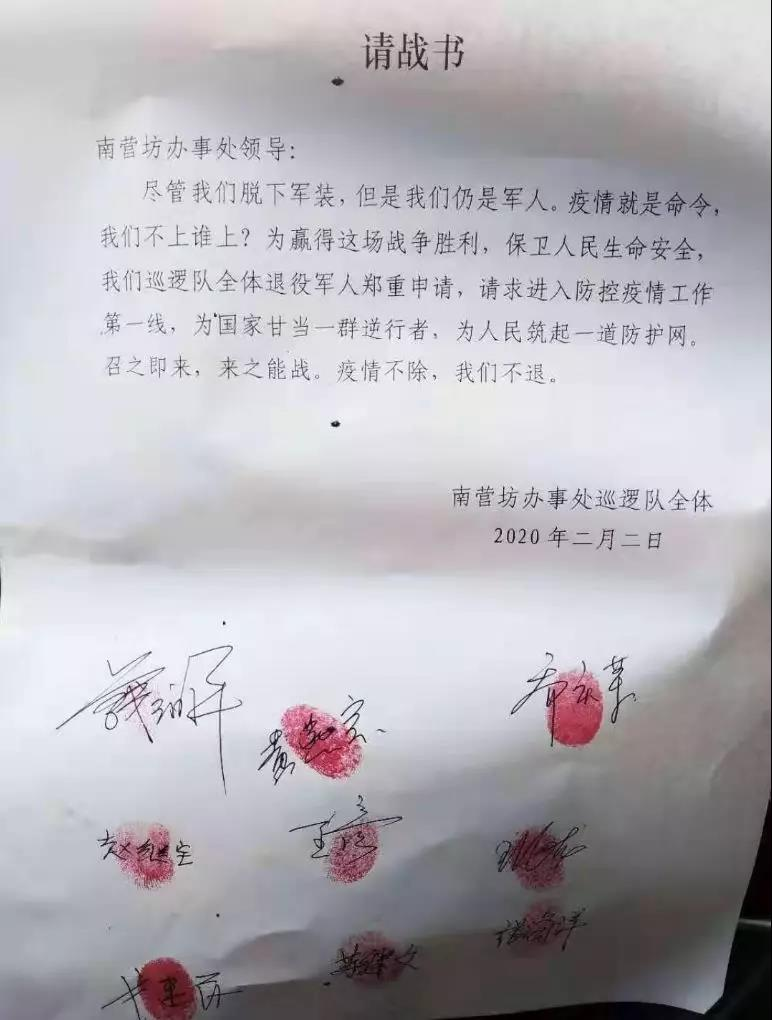 请战书
南营坊办事处领导：
尽管我们脱下军装，但是我们仍是军人。疫情就是命令，
我们不上谁上？为赢得这场战争胜利，保卫人民生命安全，
我们巡逻队全体退役军人郑重申请，请求进入防控疫情工作
第一线，为国家甘当一群逆行者，为人民筑起一道防护网。
召之即来，来之能战。疫情不除，我们不退。
南营坊办事处巡逻队全体
2020年二月二日